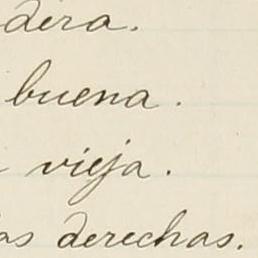 dera.
buena.
vieja.
as derechas.